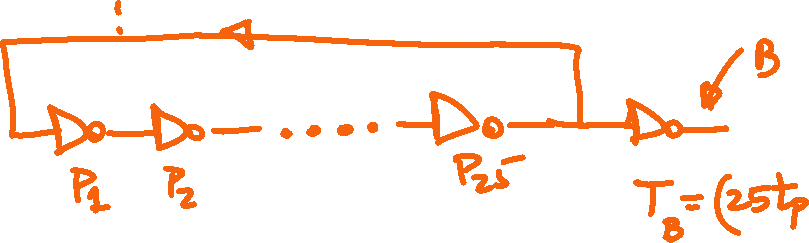 B
P1 P2 .... P25
T_B = (25tp